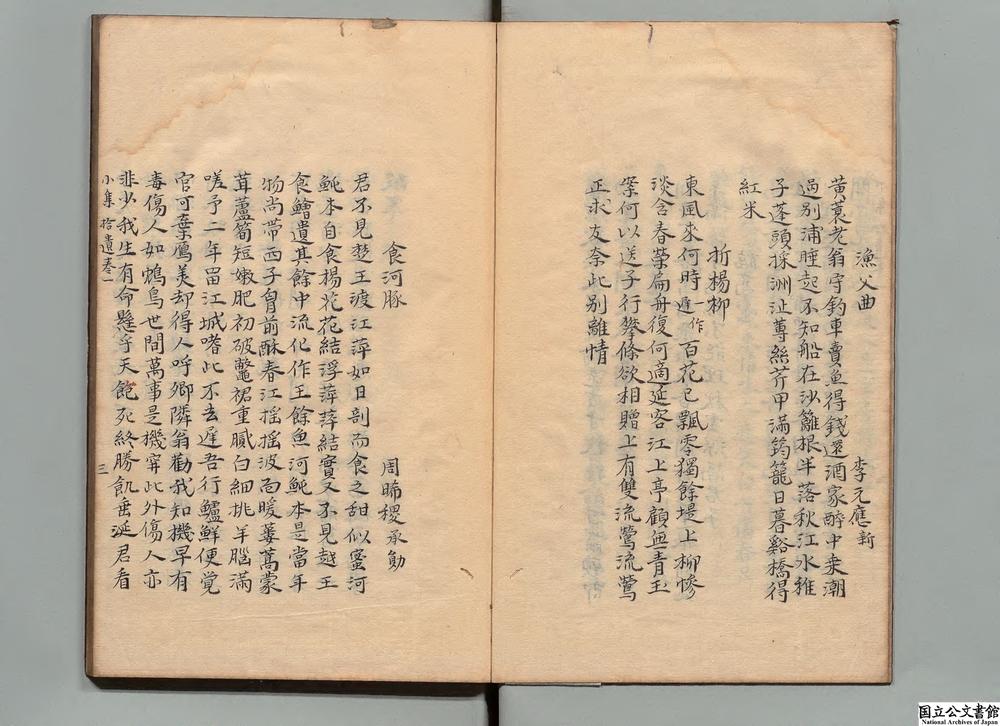 漁父曲
李元應新
黃蓑老翁守釣車賣魚得錢還酒家醉中乗潮
過別浦睡起不知船在沙籬根半落秋江水稚
子蓬頭採洲沚蓴絲芹甲滿筠籠日暮谿橋得
紅米
折楊柳
東風來何時一作遲百花已飄零獨餘堤上柳慘
淡含春榮扁舟復何適延客江上亭顧無青玉
案何以送子行攀條欲相贈上有雙流鶯流鶯
正求友奈此別離情
食河豚
周晞稷承勛
君不見楚王渡江萍如日剖而食之甜似蜜河
魨本自食楊花花結浮萍萍結實又不見越王
食鱠遺其餘中流化作王餘魚河魨本是當年
物尚帶西子胷前酥春江搖搖波面暖蔞蒿蒙
茸蘆筍短嫩肥初破鼈裙重膩白細挑羊腦滿
嗟予二年畱江城嗜此不去遲吾行鱸鮮便覺
官可棄鴈美却得人呼鄉隣翁勸我知機早有
毒傷人如鴆鳥世間萬事是機穽此外傷人亦
非少我生有命懸乎天飽死終勝飢垂涎君看
小集拾遺卷一
三
国立公文書館
National Archives of Japan